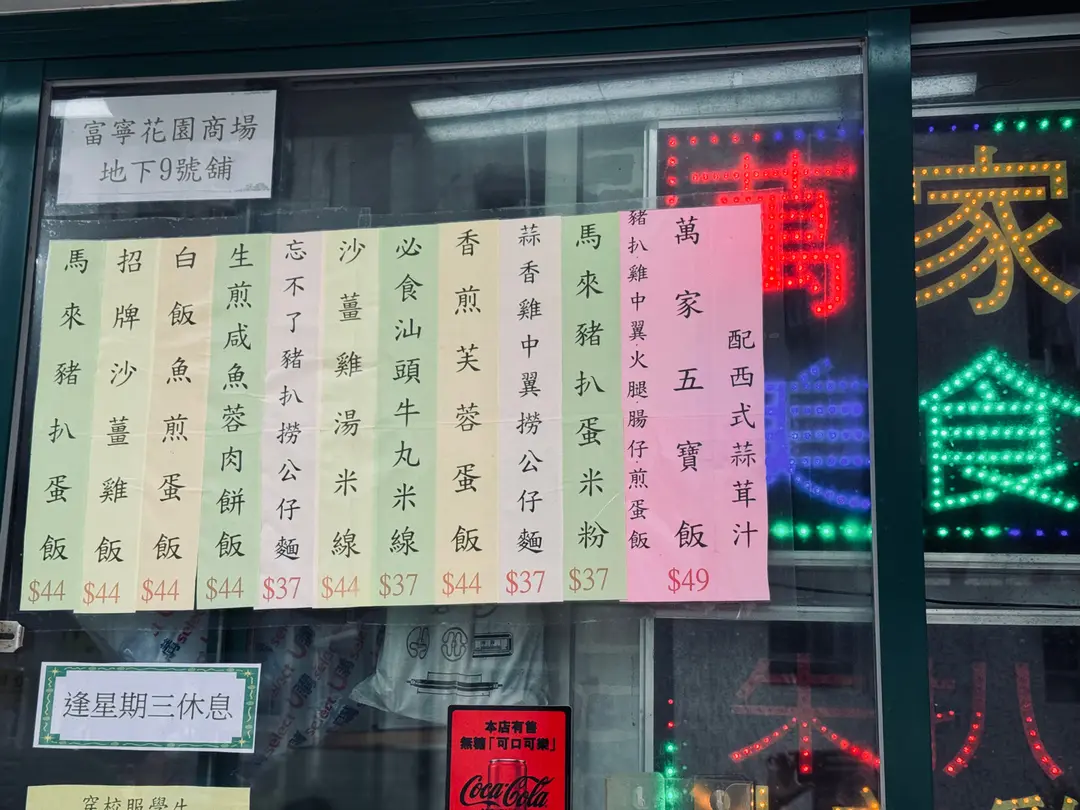 富寧花園商場
地下9號舖
配西式蒜茸汁
萬家五寶飯
$49
豬扒.雞中翼.火腿.腸仔.煎蛋飯
馬來豬扒蛋米粉
$37
蒜香雞中翼撈公仔麵
$37
香煎芙蓉蛋飯
$44
必食汕頭牛丸米線
$37
沙薑雞湯米線
$44
忘不了豬扒撈公仔麵
$37
生煎咸魚蓉肉餅飯
$44
白飯魚煎蛋飯
$44
招牌沙薑雞飯
$44
馬來豬扒蛋飯
$44
萬家
美食
逢星期三休息
本店有售
無糖「可口可樂」
Coca-Cola
穿校服學生